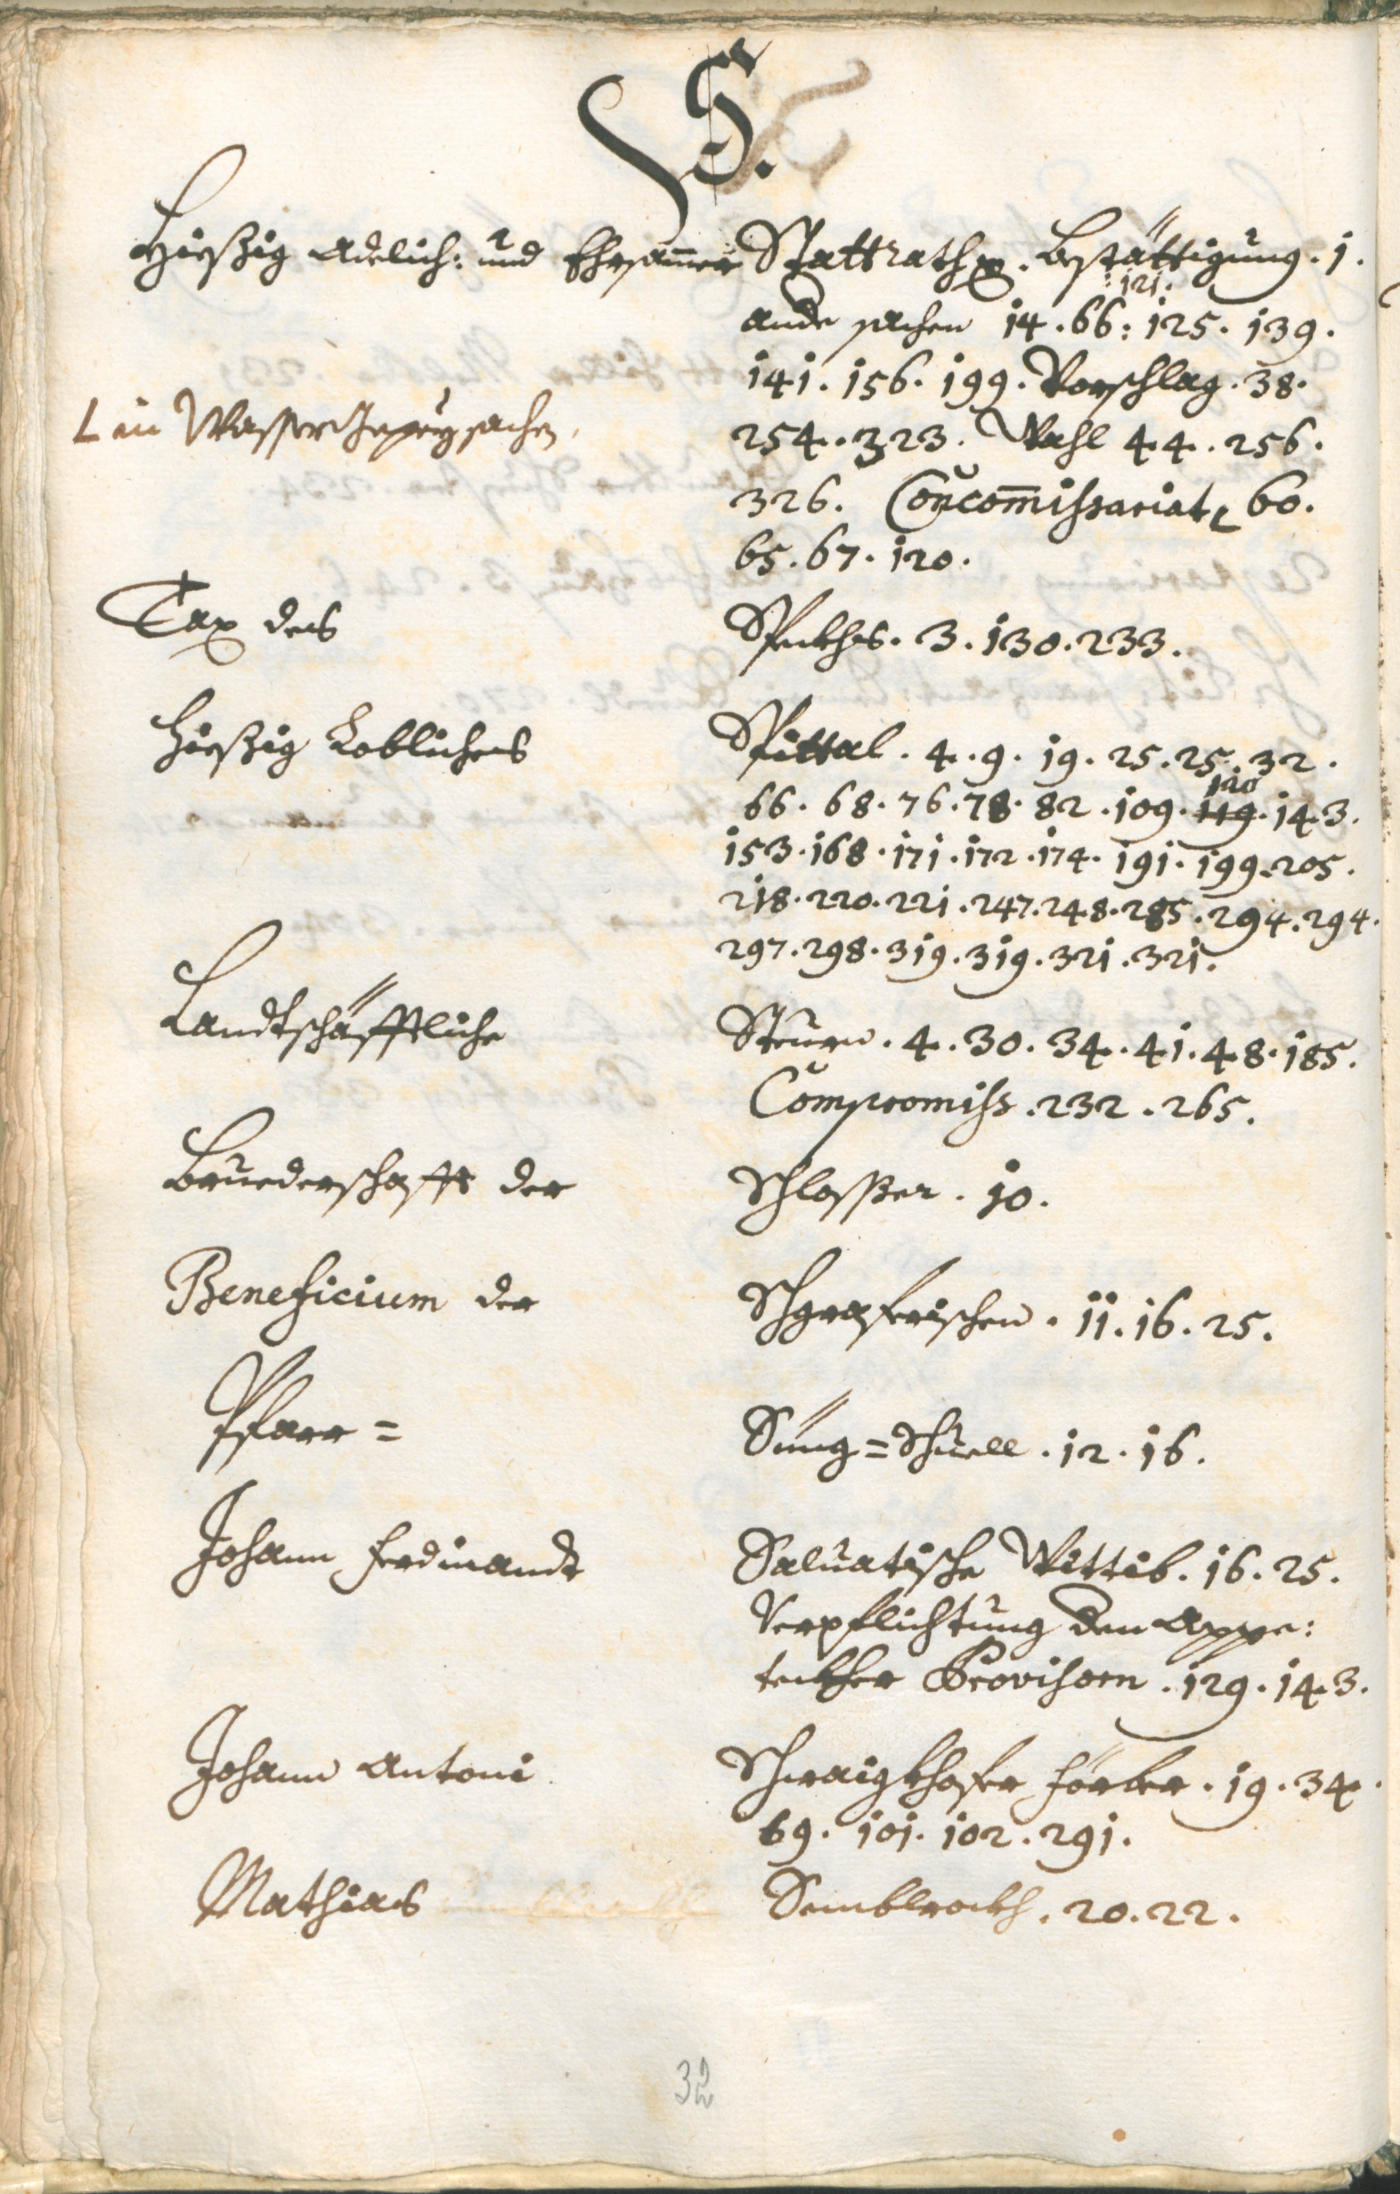 S.
Hießig Adelich: und Ehrsamer Stattrath. Bestättigung. 1.
121.
ande sachen 14. 66: 125. 139.
141. 156. 199. Vorschlag. 38.
L in Wasser sachen.
254. 323. Wahl 44. 256.
326. Concommissariat L 60.
65. 67. 120.
Tax des Spekhes. 3. 130. 233.
Hießig Loblichens Spittal. 4. 9. 19. 25. 25. 32.
120
66. 68. 76. 78. 82. 109. 119. 143.
153. 168. 171. 172. 174. 191. 199. 205.
218. 220. 221. 247. 248. 285. 294. 294.
297. 298. 319. 319. 321. 321.
Landtschäfftliche Steurn. 4. 30. 34. 41. 48. 185.
Compromiss. 232. 265.
Bruederschafft der Schlosßer. 10.
Beneficium der Schgraferischen. 11. 16. 25.
Pfarr= Süng=Schuell. 12. 16.
Johann Ferdinandt Saluatische Wittib. 16. 25.
Verpflichtung den Appe:
tekher Provisorn. 129. 143.
Johann Antoni Schwaigkhofer Förber. 19. 34.
69. 101. 102. 291.
Mathias Semblrockh. 20. 22.
32